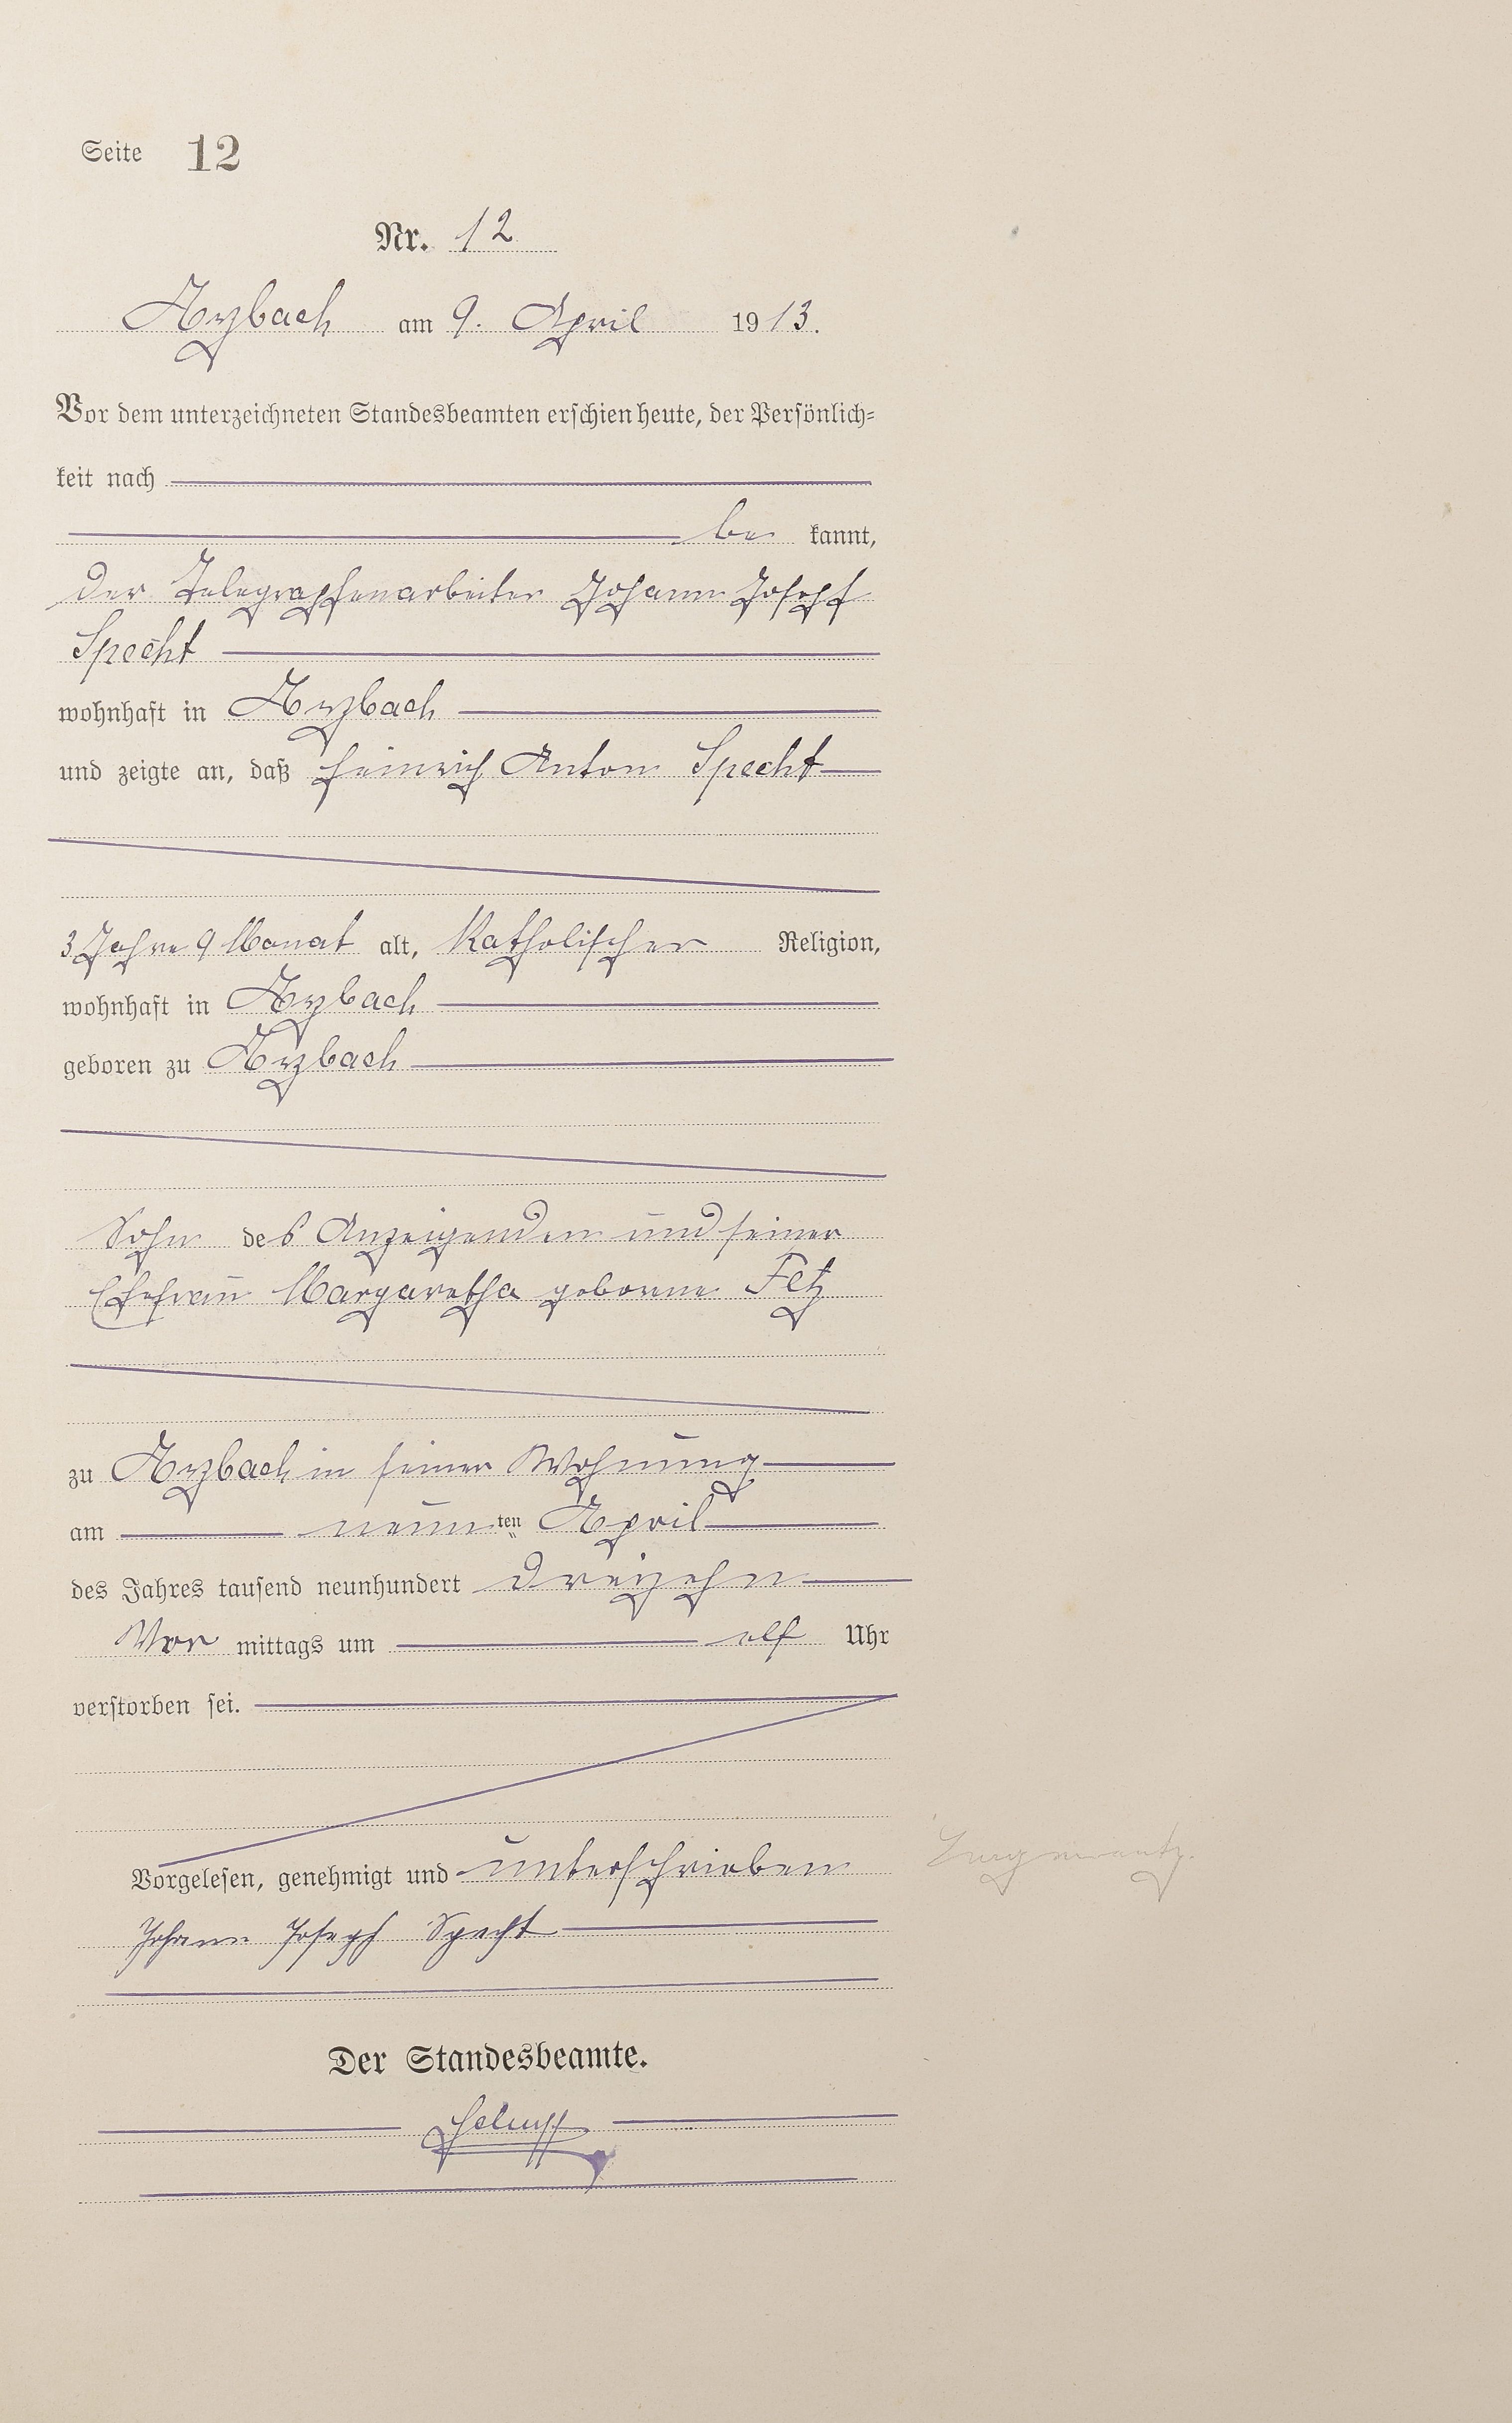 Seite 12
Nr. 12
Arzbach am 9. April 1913.
Vor dem unterzeichneten Standesbeamten erschien heute, der Persönlich-
keit nach
be kannt,
der Telegraphenarbeiter Johann Joseph
Specht
wohnhaft in Arzbach
und zeigte an, daß Heinrich Anton Specht
3 Jahre 9 Monat alt, Katholischer Religion,
wohnhaft in Arzbach
geboren zu Arzbach
Sohn des Anzeigenden und seiner
Ehefrau Margaretha geborene Fetz
zu Arzbach in seiner Wohnung
am neunten April
des Jahres tausend neunhundert dreizehn
Vor mittags um elf Uhr
verstorben sei.
Vorgelesen, genehmigt und unterschrieben
Johann Joseph Specht
Der Standesbeamte.